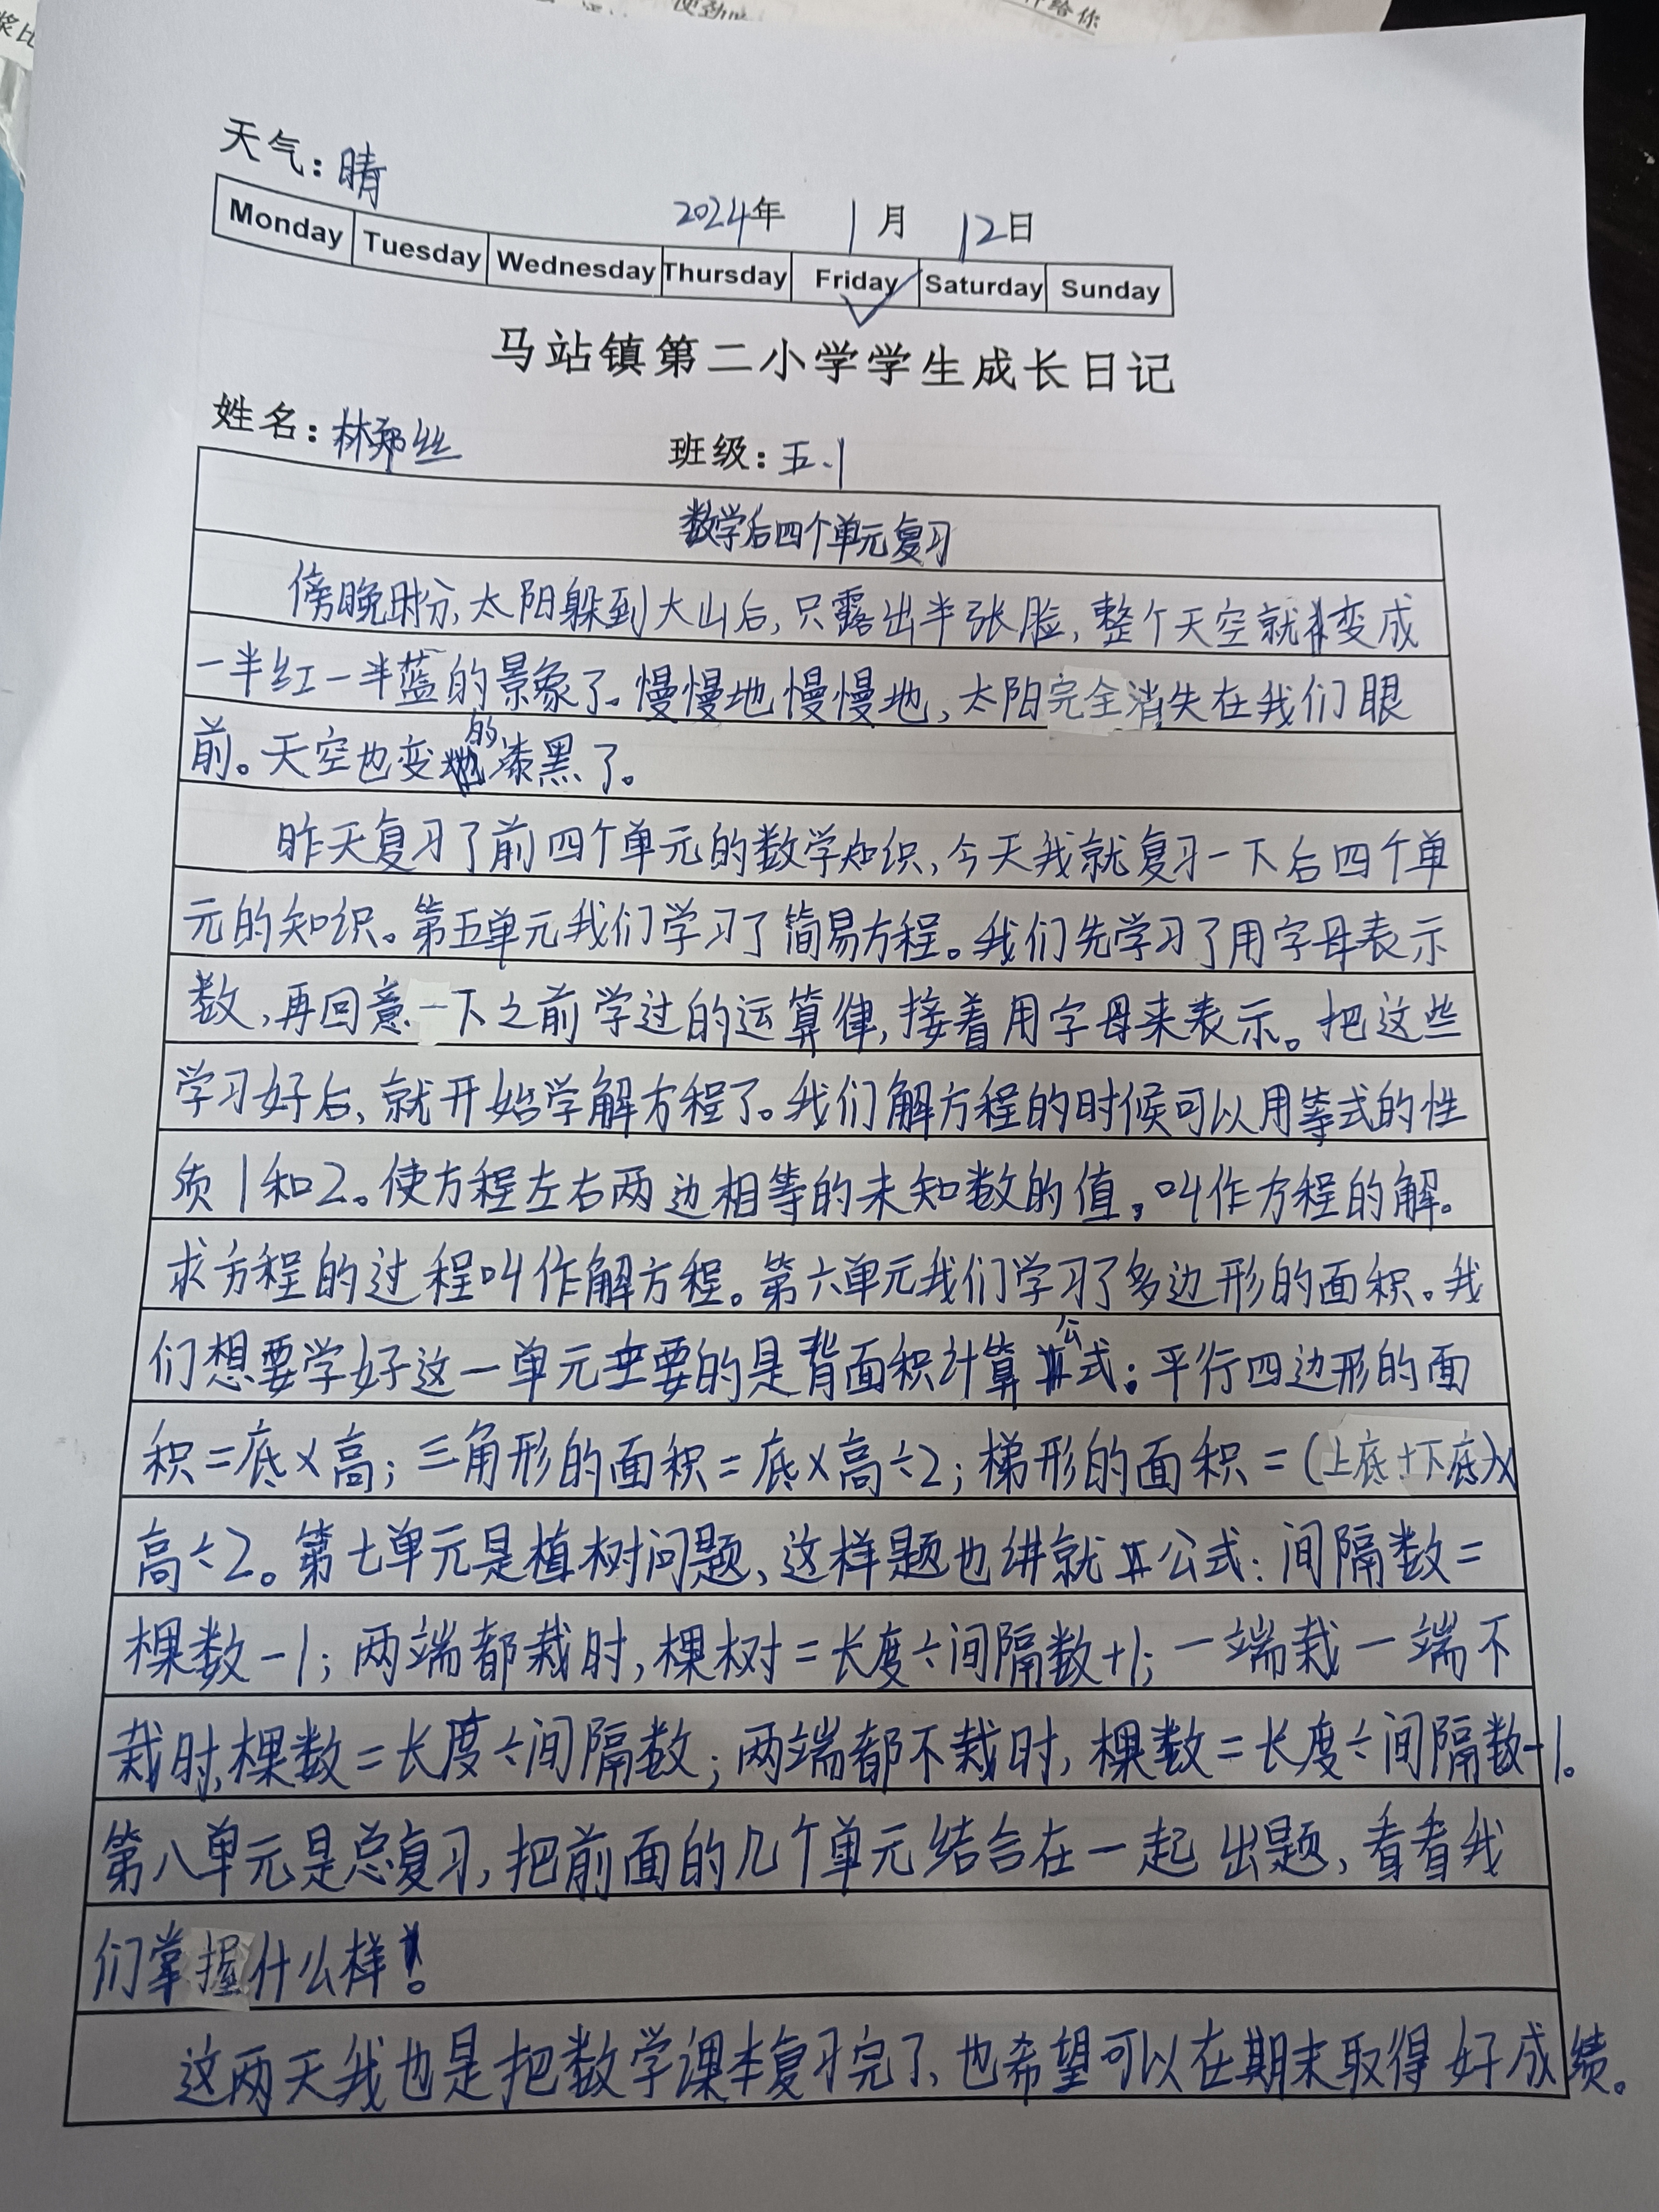 天气：晴
2024年 1月 12日
Monday Tuesday Wednesday Thursday Friday Saturday Sunday
马站镇第二小学学生成长日记
姓名：林郑丝 班级：五.1
数学后四个单元复习
傍晚时分，太阳躲到大山后，只露出半张脸，整个天空就变成
一半红一半蓝的景象了。慢慢地慢慢地，太阳完全消失在我们眼
前。天空也变的漆黑了。
昨天复习了前四个单元的数学知识，今天我就复习一下后四个单
元的知识。第五单元我们学习了简易方程。我们先学习了用字母表示
数，再回意一下之前学过的运算律，接着用字母来表示。把这些
学习好后，就开始学解方程了。我们解方程的时候可以用等式的性
质1和2。使方程左右两边相等的未知数的值，叫作方程的解。
求方程的过程叫作解方程。第六单元我们学习了多边形的面积。我
们想要学好这一单元主要的是背面积计算公式：平行四边形的面
积=底×高；三角形的面积=底×高÷2；梯形的面积=(上底+下底)×
高÷2。第七单元是植树问题，这样题也讲就公式：间隔数=
棵数-1；两端都栽时，棵树=长度÷间隔数+1；一端栽一端不
栽时，棵数=长度÷间隔数；两端都不栽时，棵数=长度÷间隔数-1。
第八单元是总复习，把前面的几个单元结合在一起出题，看看我
们掌握什么样。
这两天我也是把数学课本复习完了，也希望可以在期末取得好成绩。